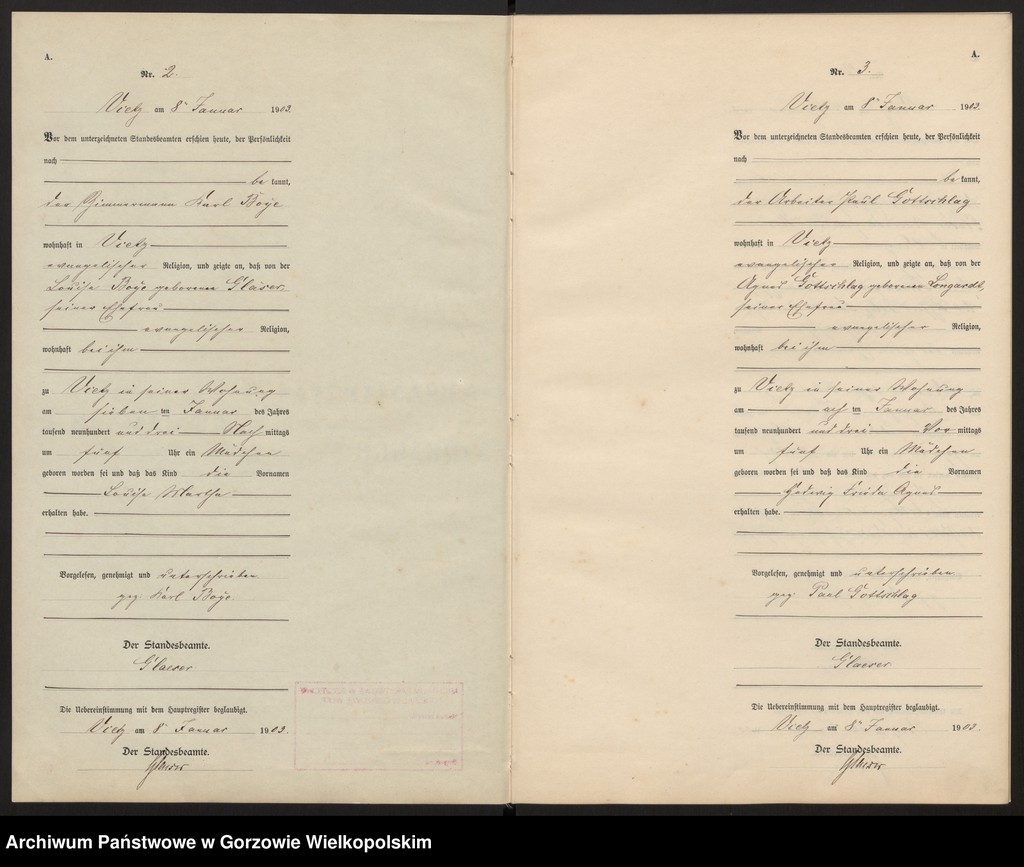 A.
Nr. 2.
Vietz am 8t Januar 1903.
Vor dem unterzeichneten Standesbeamten erschien heute, der Persönlichkeit
nach
be kannt,
der Zimmermann Karl Boÿe
wohnhaft in Vietz
evangelischer Religion, und zeigte an, daß von der
Louise Boÿe geborenen
seiner Ehefrau
evangelischer Religion,
wohnhaft bei ihm
zu Vietz in seiner Wohnung
am sieben ten Januar des Jahres
tausend neunhundert und drei Nach mittags
um fünf Uhr ein Mädchen
geboren worden sei und daß das Kind die Vornamen
Louise Martha
erhalten habe.
Vorgelesen, genehmigt und unterschrieben
gez. Karl Boÿe.
Der Standesbeamte.
Glaeser
Die Uebereinstimmung mit dem Hauptregister beglaubigt.
Vietz am 8t Januar 1903.
Der Standesbeamte.
Glaeser
A.
Nr. 3.
Vietz am 8t Januar 1903.
Vor dem unterzeichneten Standesbeamten erschien heute, der Persönlichkeit
nach
be kannt,
der Arbeiter Paul Gottschlag
wohnhaft in Vietz
evangelischer Religion, und zeigte an, daß von der
Agnes Gottschlag geborenen
seiner Ehefrau
evangelischer Religion,
wohnhaft bei ihm
zu Vietz in seiner Wohnung
am ach ten Januar des Jahres
tausend neunhundert und drei Vor mittags
um fünf Uhr ein Mädchen
geboren worden sei und daß das Kind die Vornamen
Hedwig Frieda Agnes
erhalten habe.
Vorgelesen, genehmigt und unterschrieben
gez. Paul Gottschlag
Der Standesbeamte.
Glaeser
Die Uebereinstimmung mit dem Hauptregister beglaubigt.
Vietz am 8t Januar 1903.
Der Standesbeamte.
Glaeser
Archiwum Państwowe w Gorzowie Wielkopolskim